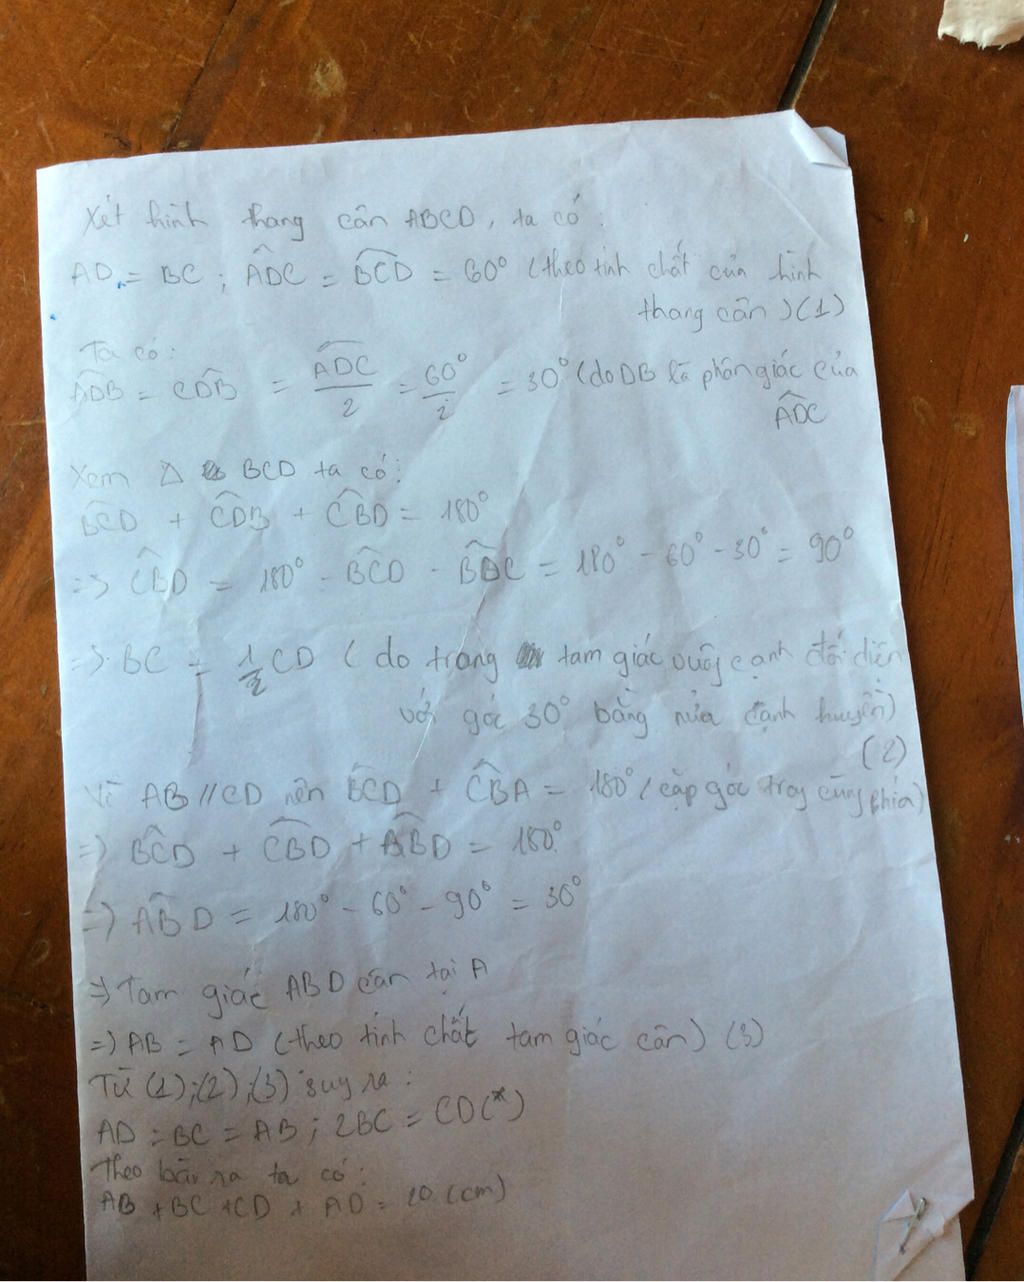 Xét hình thang cân ABCD, ta có:
AD = BC ; ADC^ = BCD^ = 60° (theo tính chất của hình
thang cân) (1)
Ta có:
ADB^ = CDB^ = ADC^/2 = 60°/2 = 30° (do DB là phân giác của
ADC^
Xem Δ BCD ta có:
BCD^ + CDB^ + CBD^ = 180°
=> CBD^ = 180° - BCD^ - BDC^ = 180° - 60° - 30° = 90°
=> BC = 1/2 CD (do trong tam giác vuông cạnh đối diện
với góc 30° bằng nửa cạnh huyền)
(2)
Vì AB // CD nên BCD^ + CBA^ = 180° (cặp góc trong cùng phía)
=> BCD^ + CBD^ + ABD^ = 180°
=> ABD^ = 180° - 60° - 90° = 30°
=> Tam giác ABD cân tại A
=> AB = AD (theo tính chất tam giác cân) (3)
Từ (1);(2);(3) suy ra:
AD = BC = AB ; 2BC = CD (*)
Theo bài ra ta có:
AB + BC + CD + AD = 20 (cm)